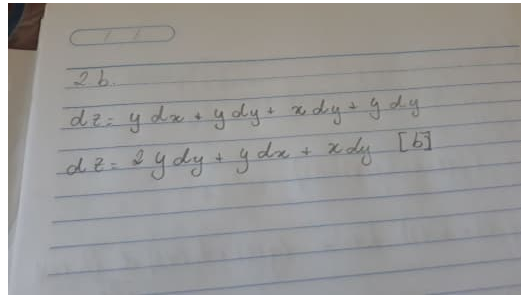 2b.
dz = y dx + y dy + x dy + y dy
dz = 2 y dy + y dx + x dy [b]